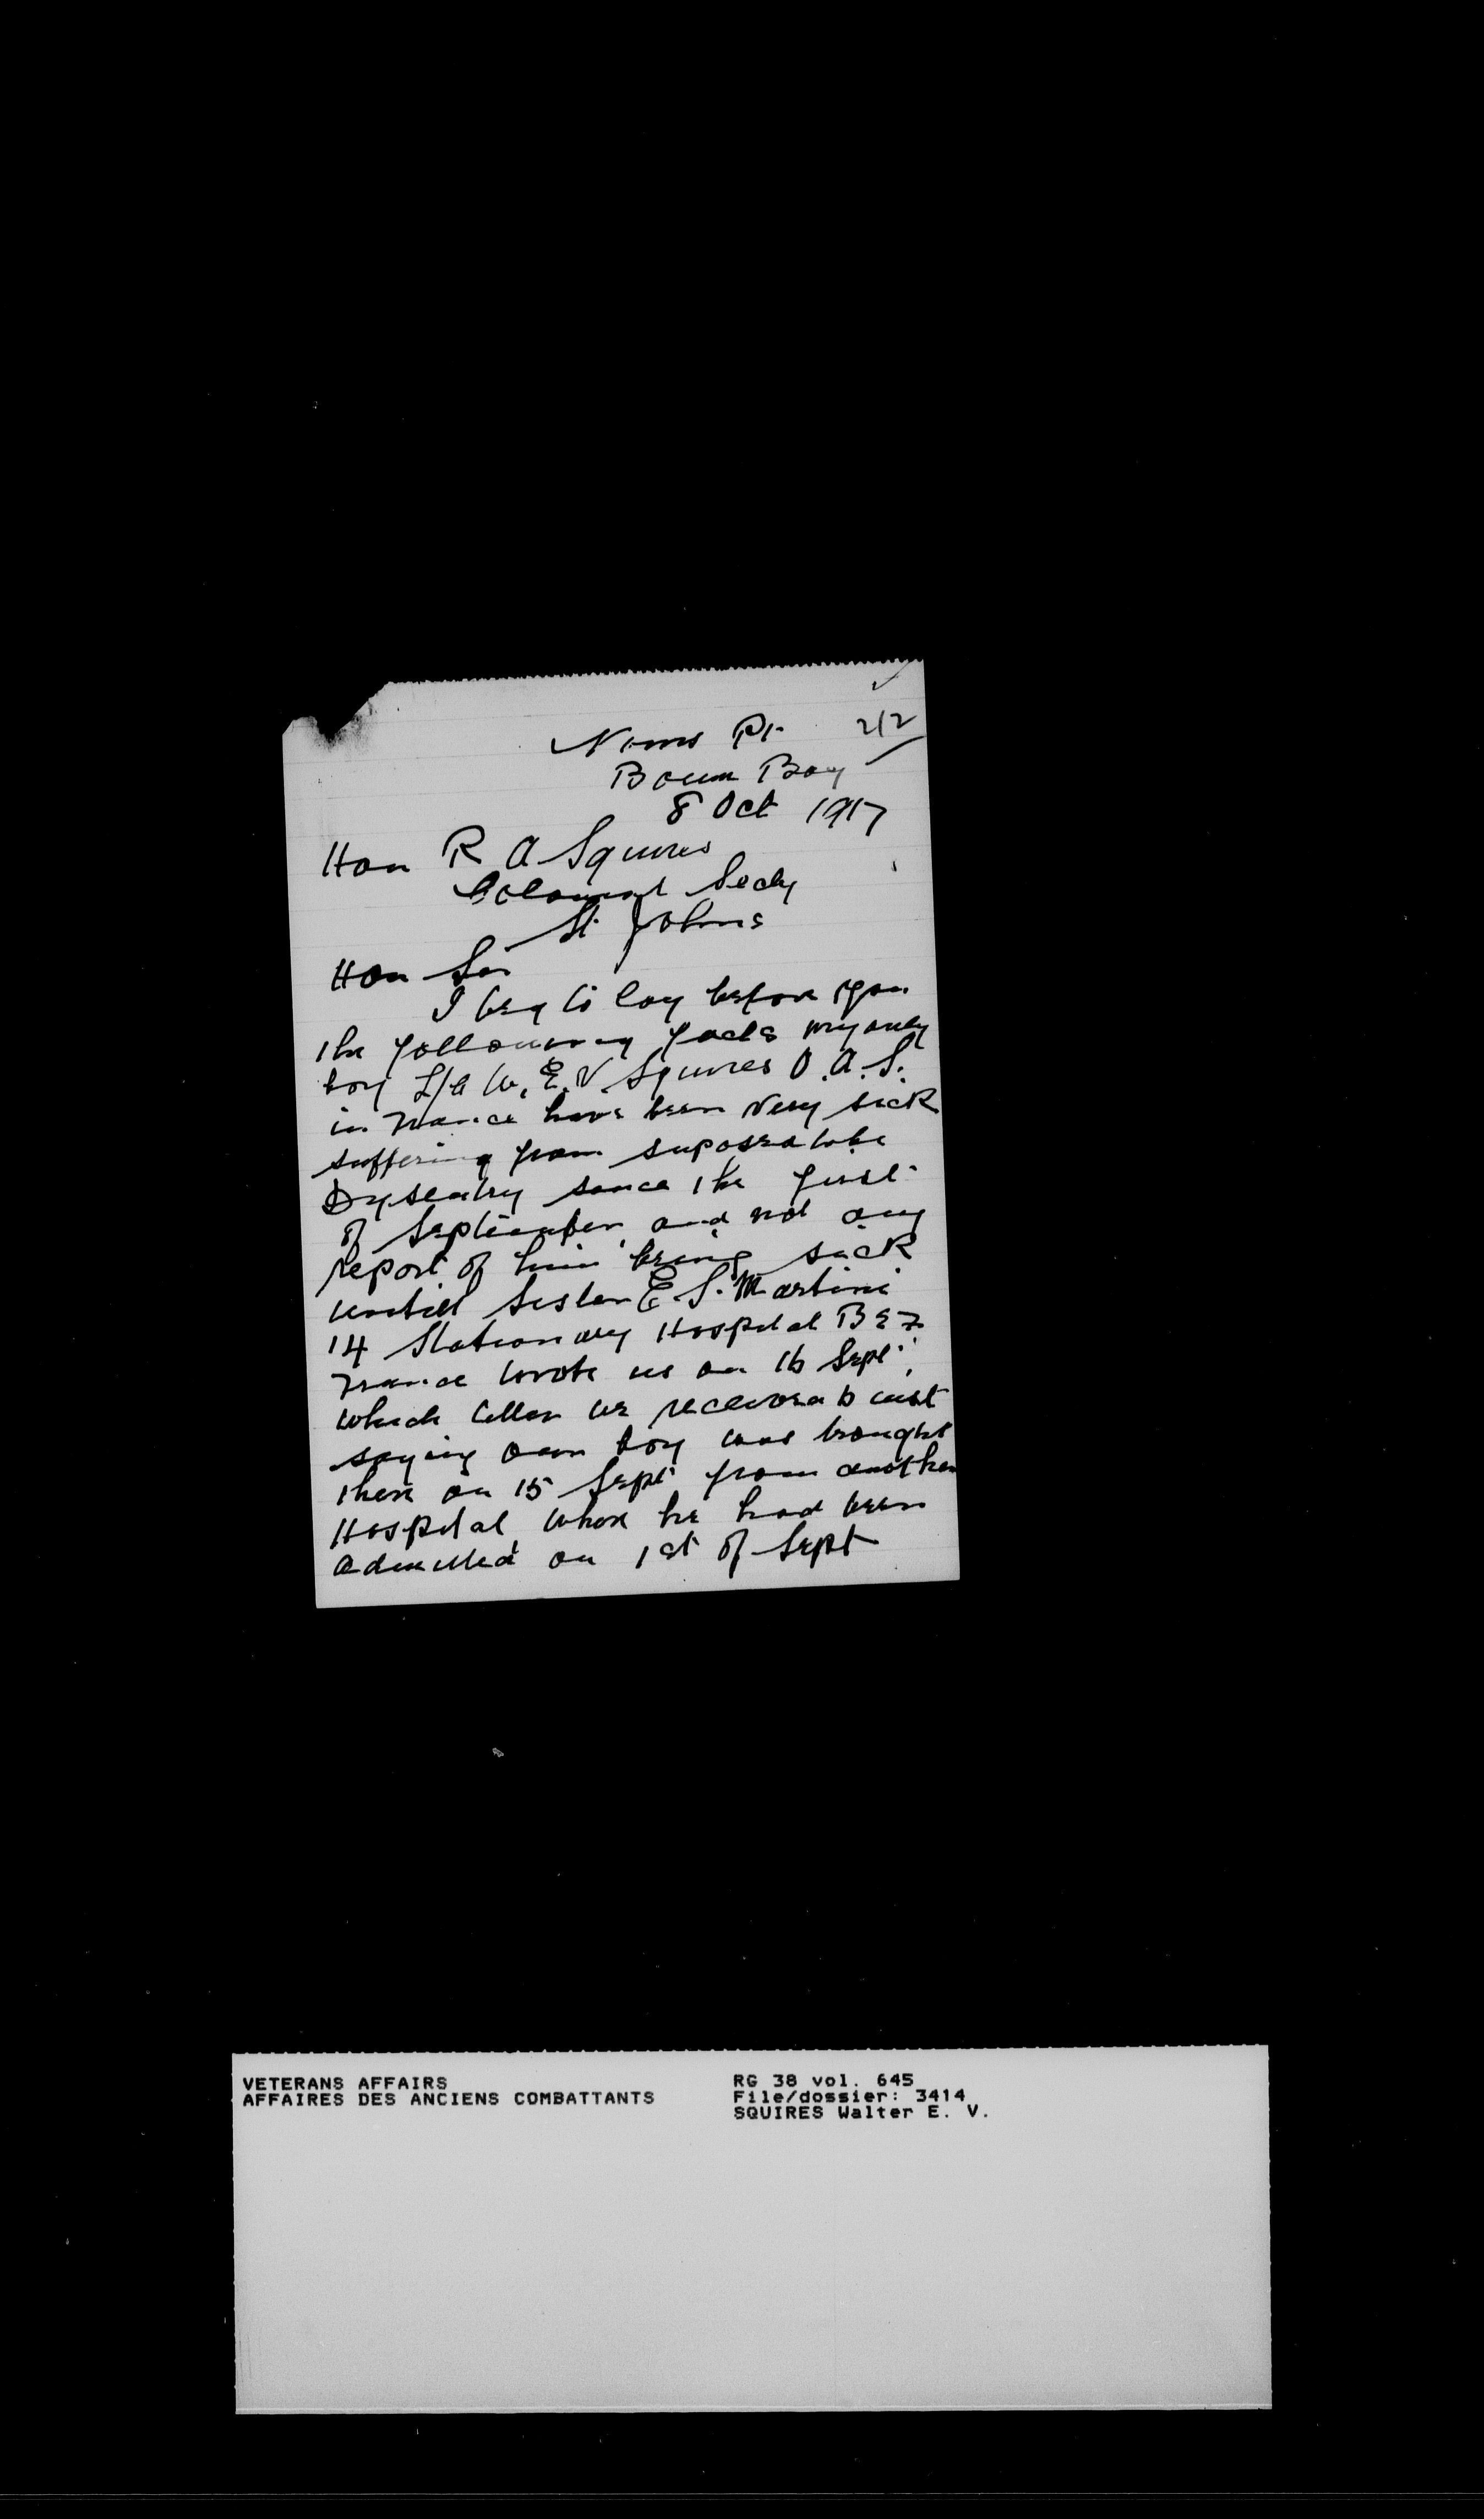 Nirms Pt. 2/2
Bonne Bay
8 Oct 1917
Hon R A Squires
Colonial Secty
St Johns
Hon Sir
I beg to lay before you
the following facts my only
boy L/C W. E. V Squires O.A.S.
in France have been very sick
suffering from suposed to be
Dysentry since the first
of September and not any
report of him being sick
untill Sister E. S. Martini
14 Stationary Hospital B E F
France wrote us on 16 Sept.
which letter we received 6 inst
saying our boy was brought
there on 15 Sept from another
Hospital where he had been
admitted on 1st of Sept
VETERANS AFFAIRS
AFFAIRES DES ANCIENS COMBATTANTS
RG 38 vol. 645
File/dossier: 3414
SQUIRES Walter E. V.